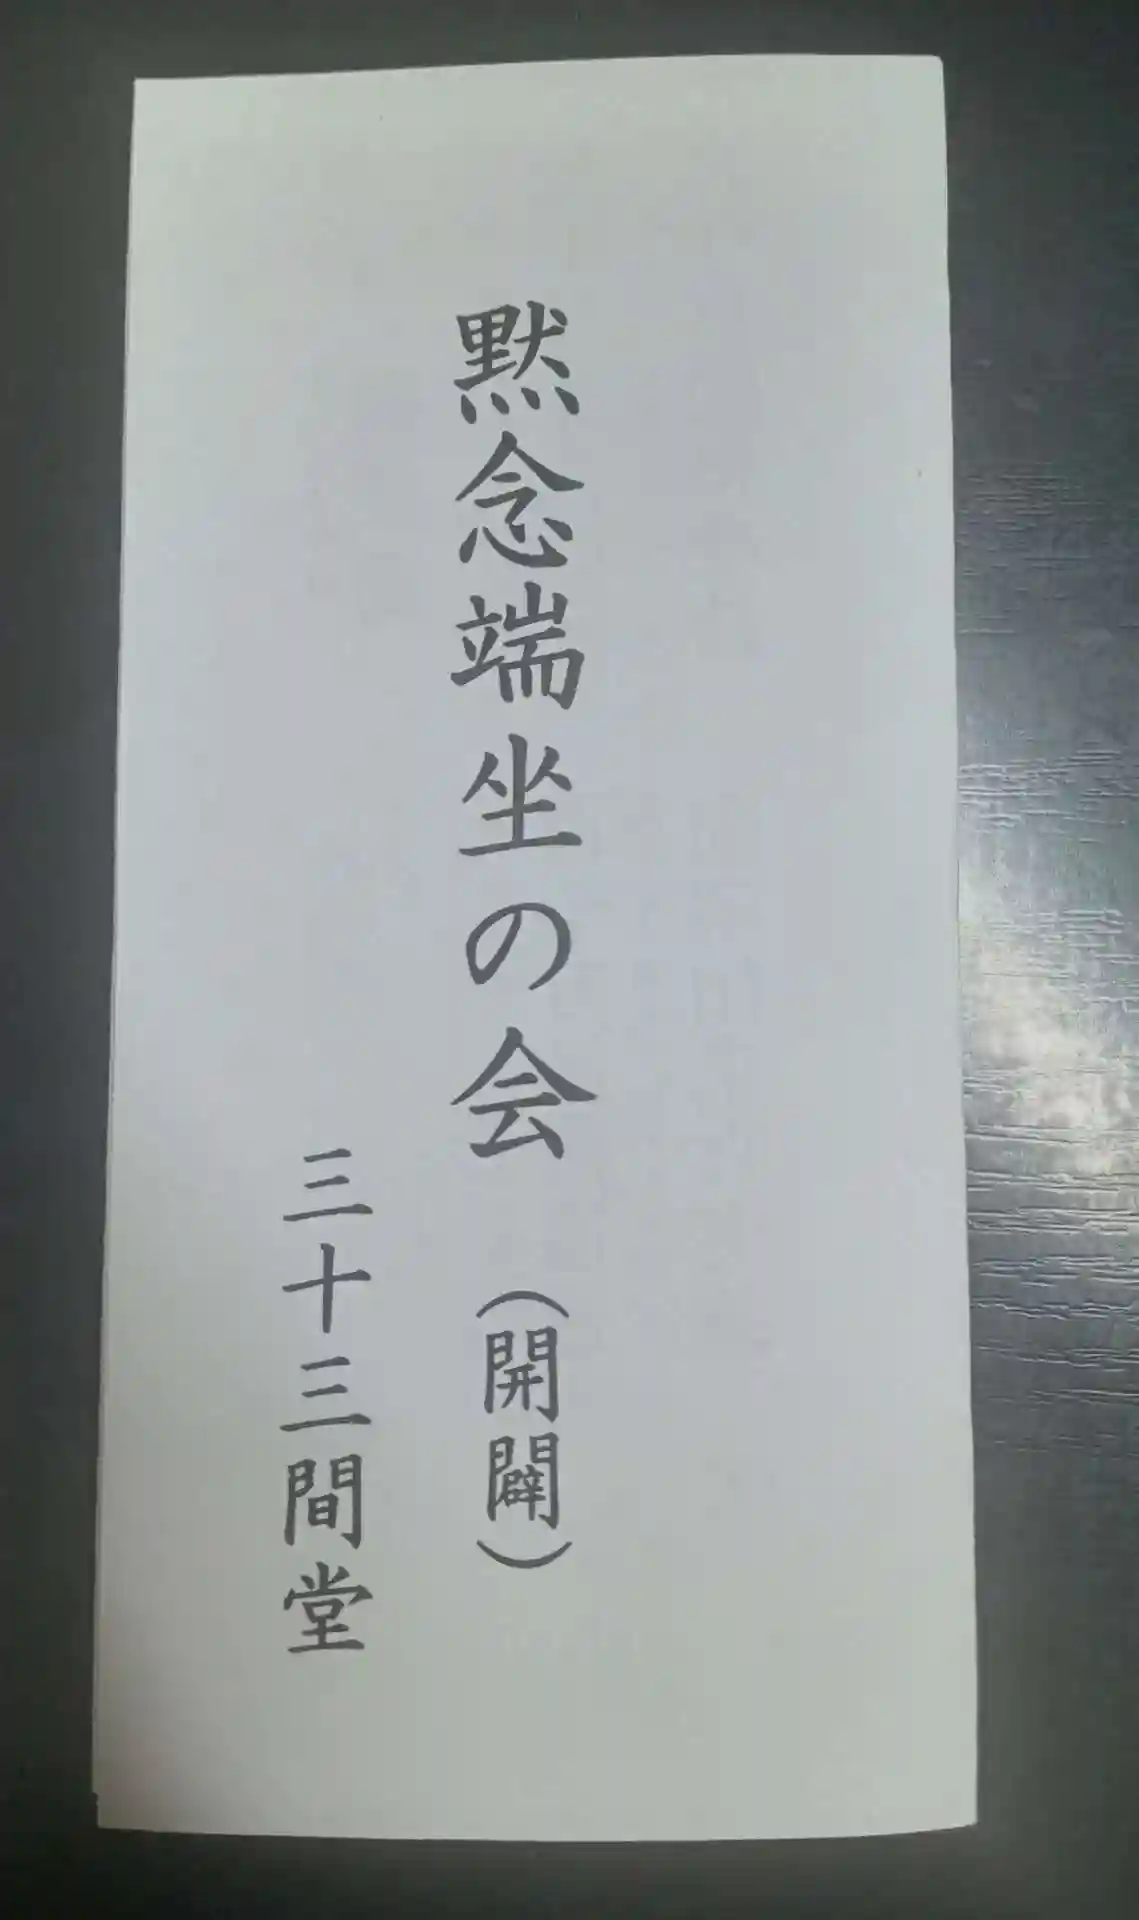 黙念端坐の会 （開闢）
三十三間堂